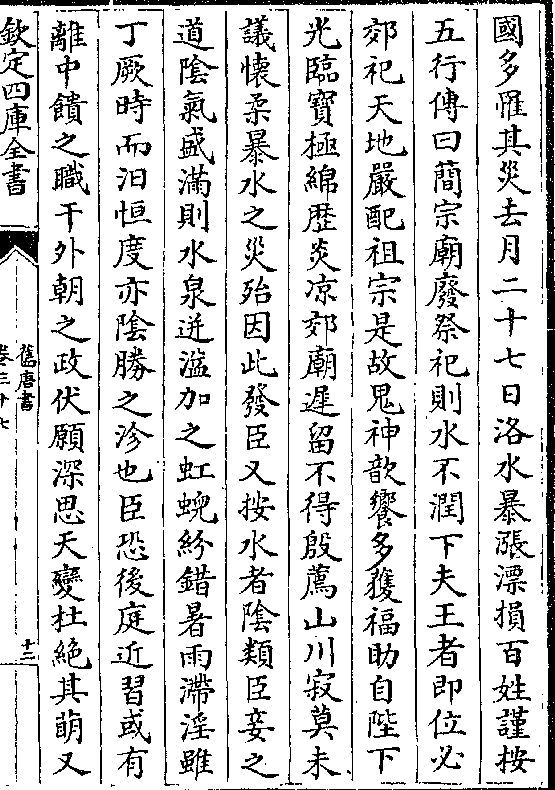 國多罹其災去月二十七日洛水暴漲漂損百姓謹按
五行傳曰簡宗廟廢祭祀則水不潤下夫王者即位必
郊祀天地嚴配祖宗是故鬼神歆饗多獲福助自陛下
光臨寶極綿歴炎凉郊廟遲留不得殷薦山川寂莫未
議懷柔暴水之災殆因此發臣又按水者陰類臣妾之
道陰氣盛滿則水泉迸溢加之虹蜺紛錯暑雨滯淫雖
丁厥時而汨恒度亦陰勝之沴也臣恐後庭近習或有
離中饋之職干外朝之政伏願深思天變杜絶其萌又
欽定四庫全書
舊唐書
卷三十七
十二